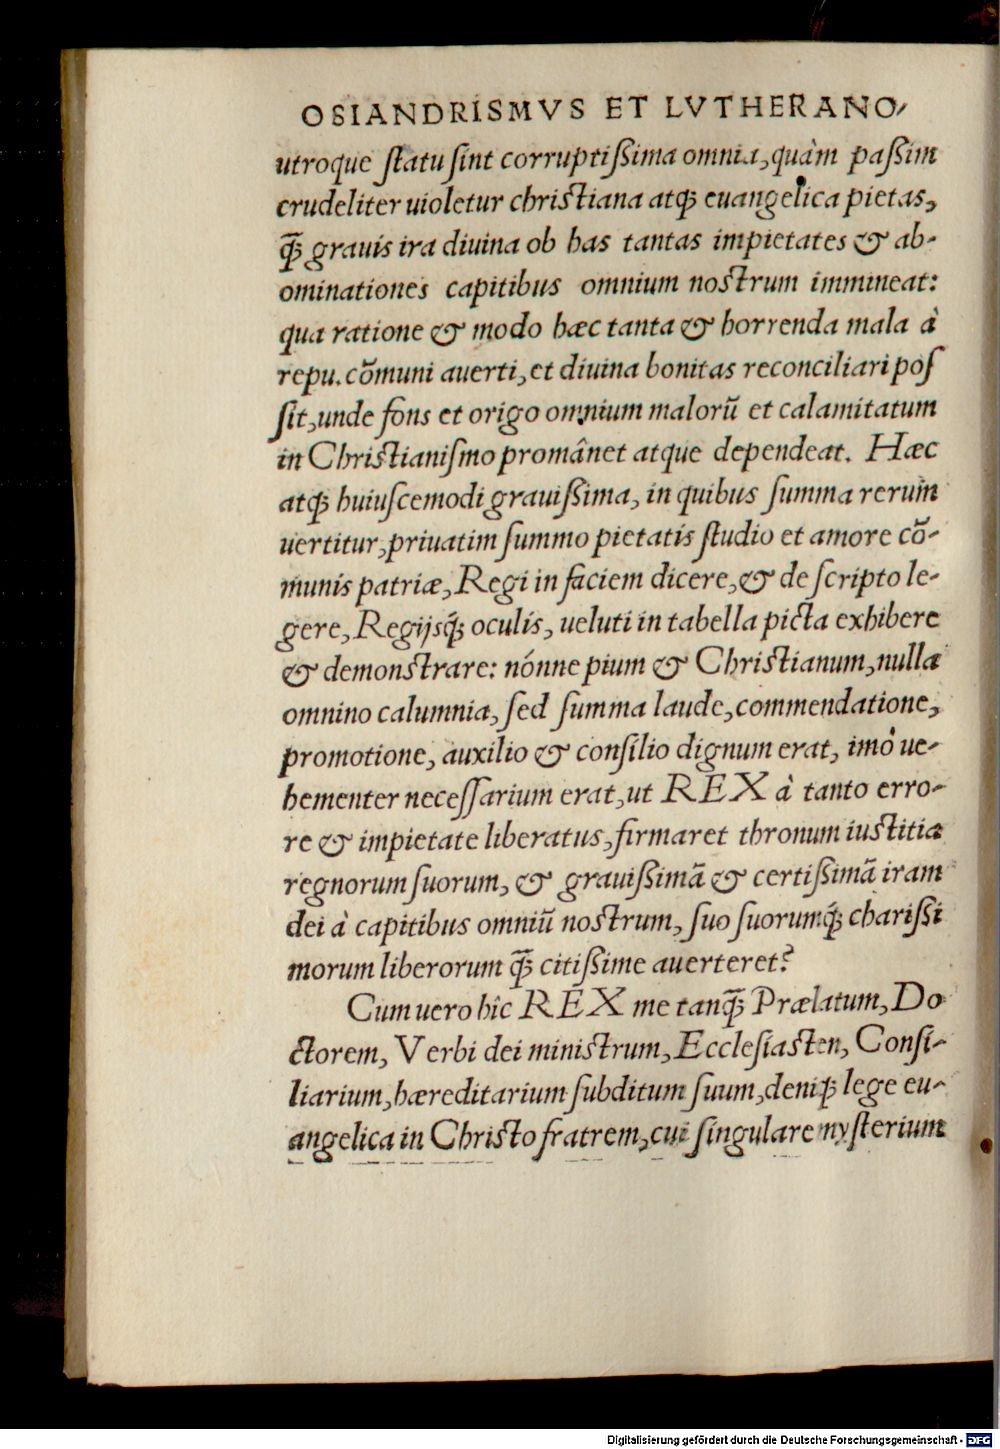 OSIANDRISMVS ET LVTHERANO-
utroque ſtatu ſint corruptiſſima omnia, quàm paſſim
crudeliter uioletur chriſtiana atq́; euangelica pietas,
q̃; grauis ira diuina ob has tantas impietates & ab-
ominationes capitibus omnium noſtrum immineat:
qua ratione & modo hæc tanta & horrenda mala à
repu. cõmuni auerti, et diuina bonitas reconciliari poſ
ſit, unde fons et origo omnium malorũ et calamitatum
in Chriſtianiſmo promânet atque dependeat. Hæc
atq́; huiuſcemodi grauiſſima, in quibus ſumma rerum
uertitur, priuatim ſummo pietatis ſtudio et amore cõ-
munis patriæ, Regi in faciem dicere, & de ſcripto le-
gere, Regijsq́; oculis, ueluti in tabella picta exhibere
& demonſtrare: nónne pium & Chriſtianum, nulla
omnino calumnia, ſed ſumma laude, commendatione,
promotione, auxilio & conſilio dignum erat, imò ue-
hementer neceſſarium erat, ut REX à tanto erro-
re & impietate liberatus, firmaret thronum iuſtitia
regnorum ſuorum, & grauiſſimã & certiſſimã iram
dei à capitibus omniũ noſtrum, ſuo ſuorumq́; chariſſi
morum liberorum q̃; citiſſime auerteret?
Cum uero hîc REX me tanq̃; Prælatum, Do
ctorem, Verbi dei miniſtrum, Eccleſiaſten, Conſi-
liarium, hæreditarium ſubditum ſuum, deniq́; lege eu-
angelica in Chriſto fratrem, cui ſingulare myſterium
Digitalisierung gefördert durch die Deutsche Forschungsgemeinschaft - DFG